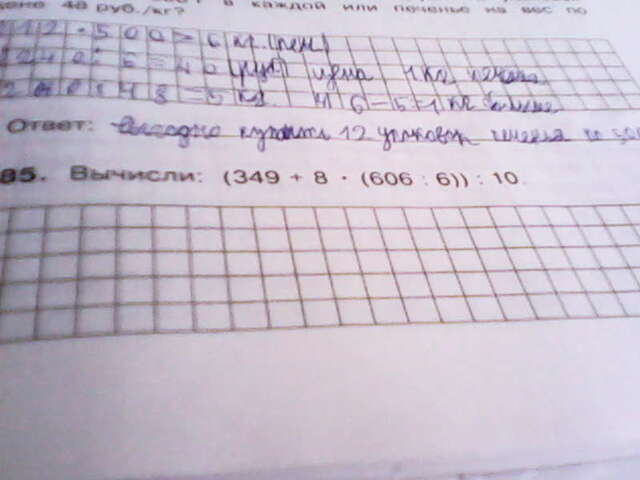 48 руб./кг? в каждой или печенье на вес по
12 · 500 = 6 кг. (печ)
240 : 6 = 40 (руб) цена 1 кг печенья
240 : 48 = 5 кг. 4) 6 – 5 = 1 кг больше
Ответ: Выгодно купить 12 упаковок печенья по
85. Вычисли: (349 + 8 · (606 : 6)) : 10.